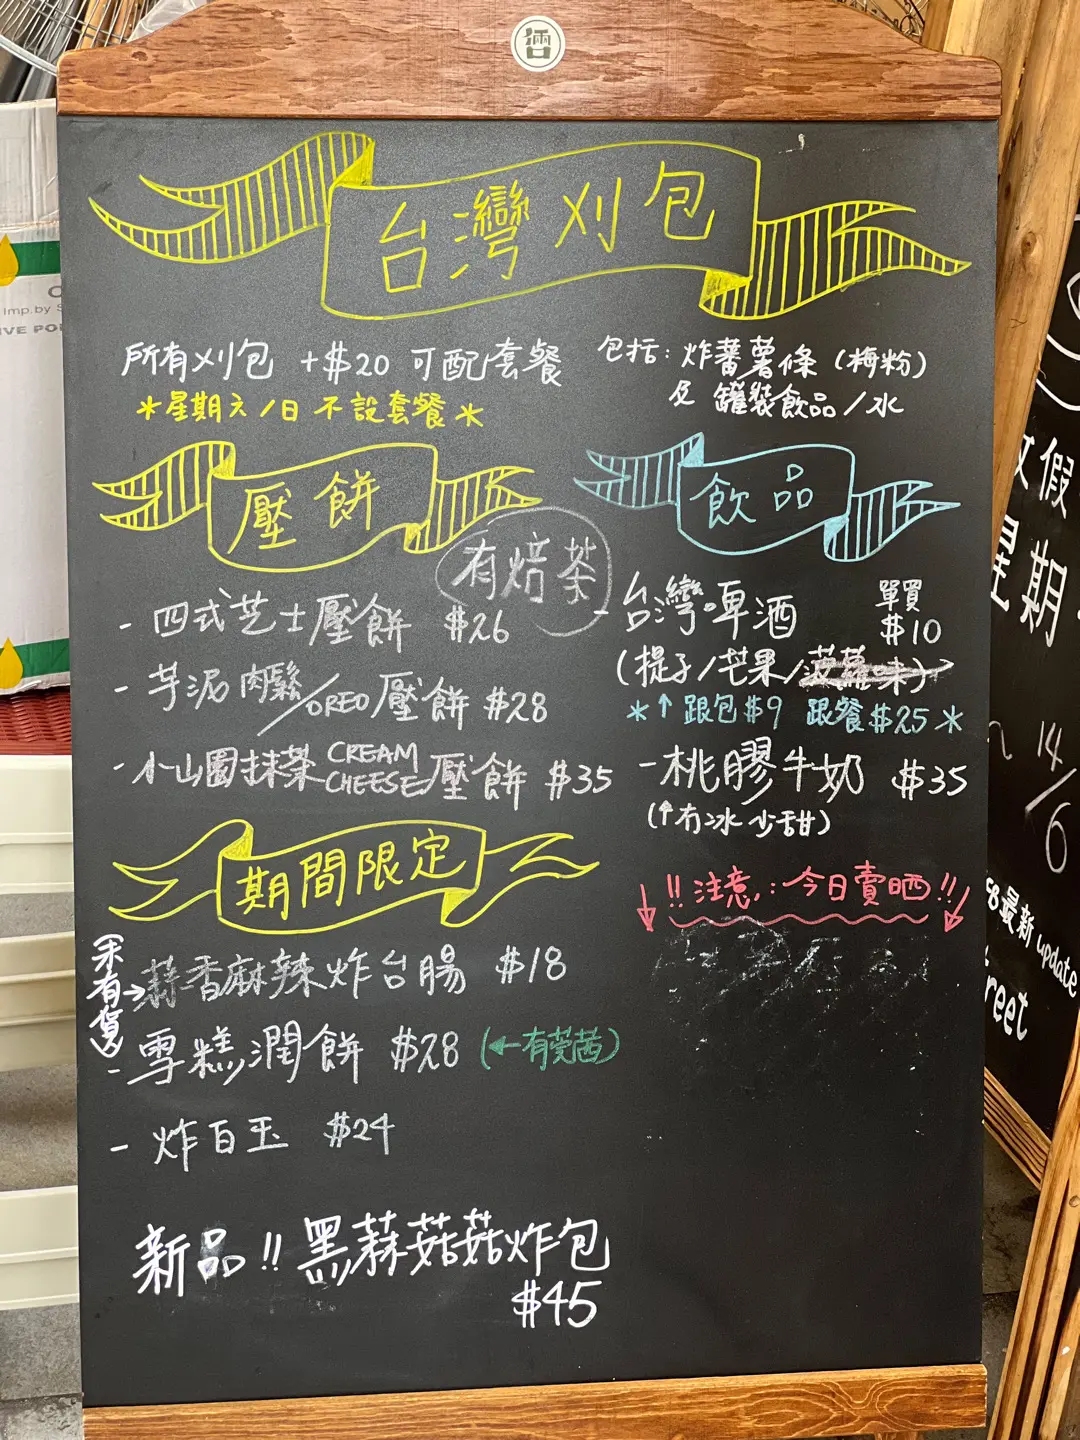 台灣刈包
所有刈包 +$20 可配套餐
*星期六/日 不設套餐*
包括：炸蕃薯條（梅粉）
及 罐裝飲品/水
壓餅
有焙茶
- 四式芝士壓餅 $26
- 芋泥肉鬆/OREO壓餅 $28
- 小山園抹茶CREAM CHEESE壓餅 $35
飲品
- 台灣啤酒 單買 $10
(提子/芒果/菠蘿味)
*↑跟包$9 跟餐$25*
- 桃膠牛奶 $35
(↑冇冰少甜)
!!注意：今日賣晒!!
期間限定
(未有貨)→蒜香麻辣炸台腸 $18
- 雪糕潤餅 $28 (←有芫茜)
- 炸百玉 $24
新品!!黑蒜菇菇炸包
$45
假
星期
14/6
最新update
Imp.by S